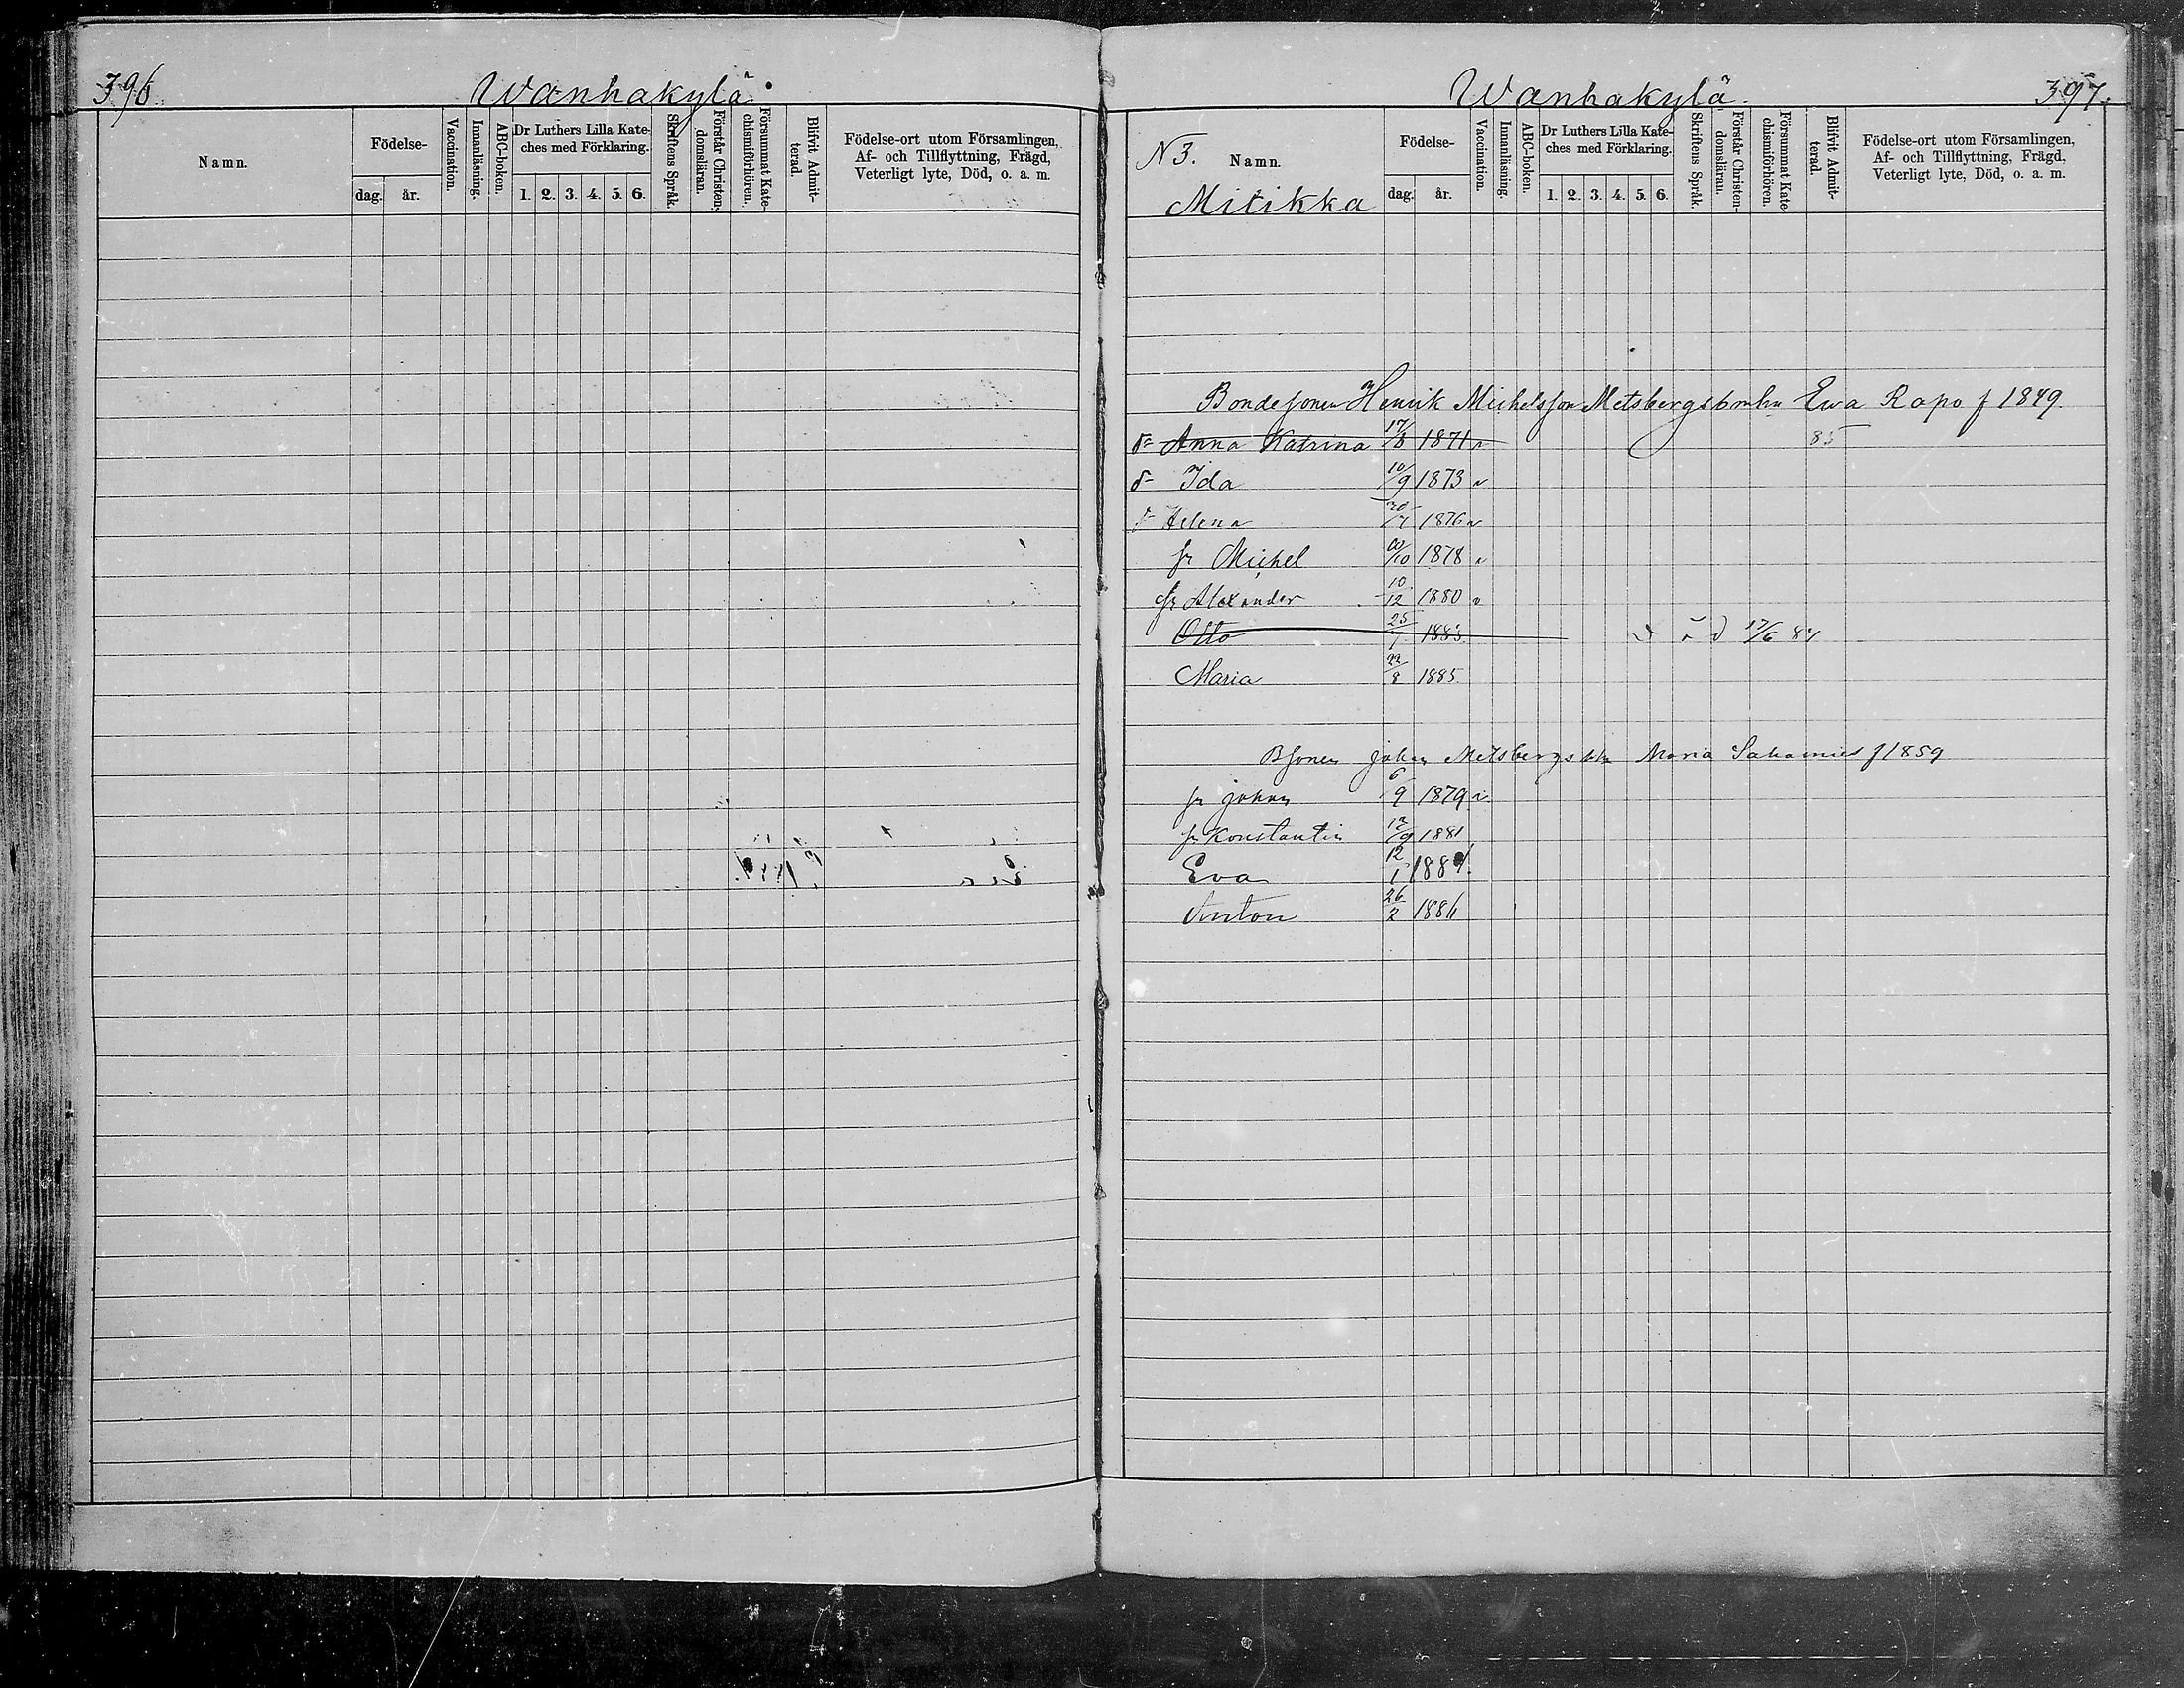 396
Wanhakylä
Namn.
Födelse-
dag. år.
Vaccination.
Innanläsning.
ABC-boken.
Dr Luthers Lilla Kate-
ches med Förklaring.
1. 2. 3. 4. 5. 6.
Skriftens Språk.
Förstår Christen-
domsläran.
Försummat Kate-
chismiförhören.
Blifvit Admit-
terad.
Födelse-ort utom Församlingen,
Af- och Tillflyttning, Frägd,
Veterligt lyte, Död, o. a. m.
Wanhakylä.
397.
N3. Namn.
Mitikka
Födelse-
dag. år.
Vaccination.
Innanläsning.
ABC-boken.
Dr Luthers Lilla Kate-
ches med Förklaring.
1. 2. 3. 4. 5. 6.
Skriftens Språk.
Förstår Christen-
domsläran.
Försummat Kate-
chismiförhören.
Blifvit Admit-
terad.
Födelse-ort utom Församlingen,
Af- och Tillflyttning, Frägd,
Veterligt lyte, Död, o. a. m.
Bondesonen Henrik Michelsson Metsbergs Ewa Rapo f 1849.
Anna Katrina 17/8 1871 v 85
Ida 10/9 1873 v
Helena 1876 v
Michel 1878 v
Alexander 10/12 1880 v
Otto 1883 d 17/6 84
Maria 22/8 1885.
Bsonen Johan Metsbergs Maria f 1859
Johan 6/9 1879 v
Konstantin 1881
Eva 12/1 1884.
Anton 26/2 1886